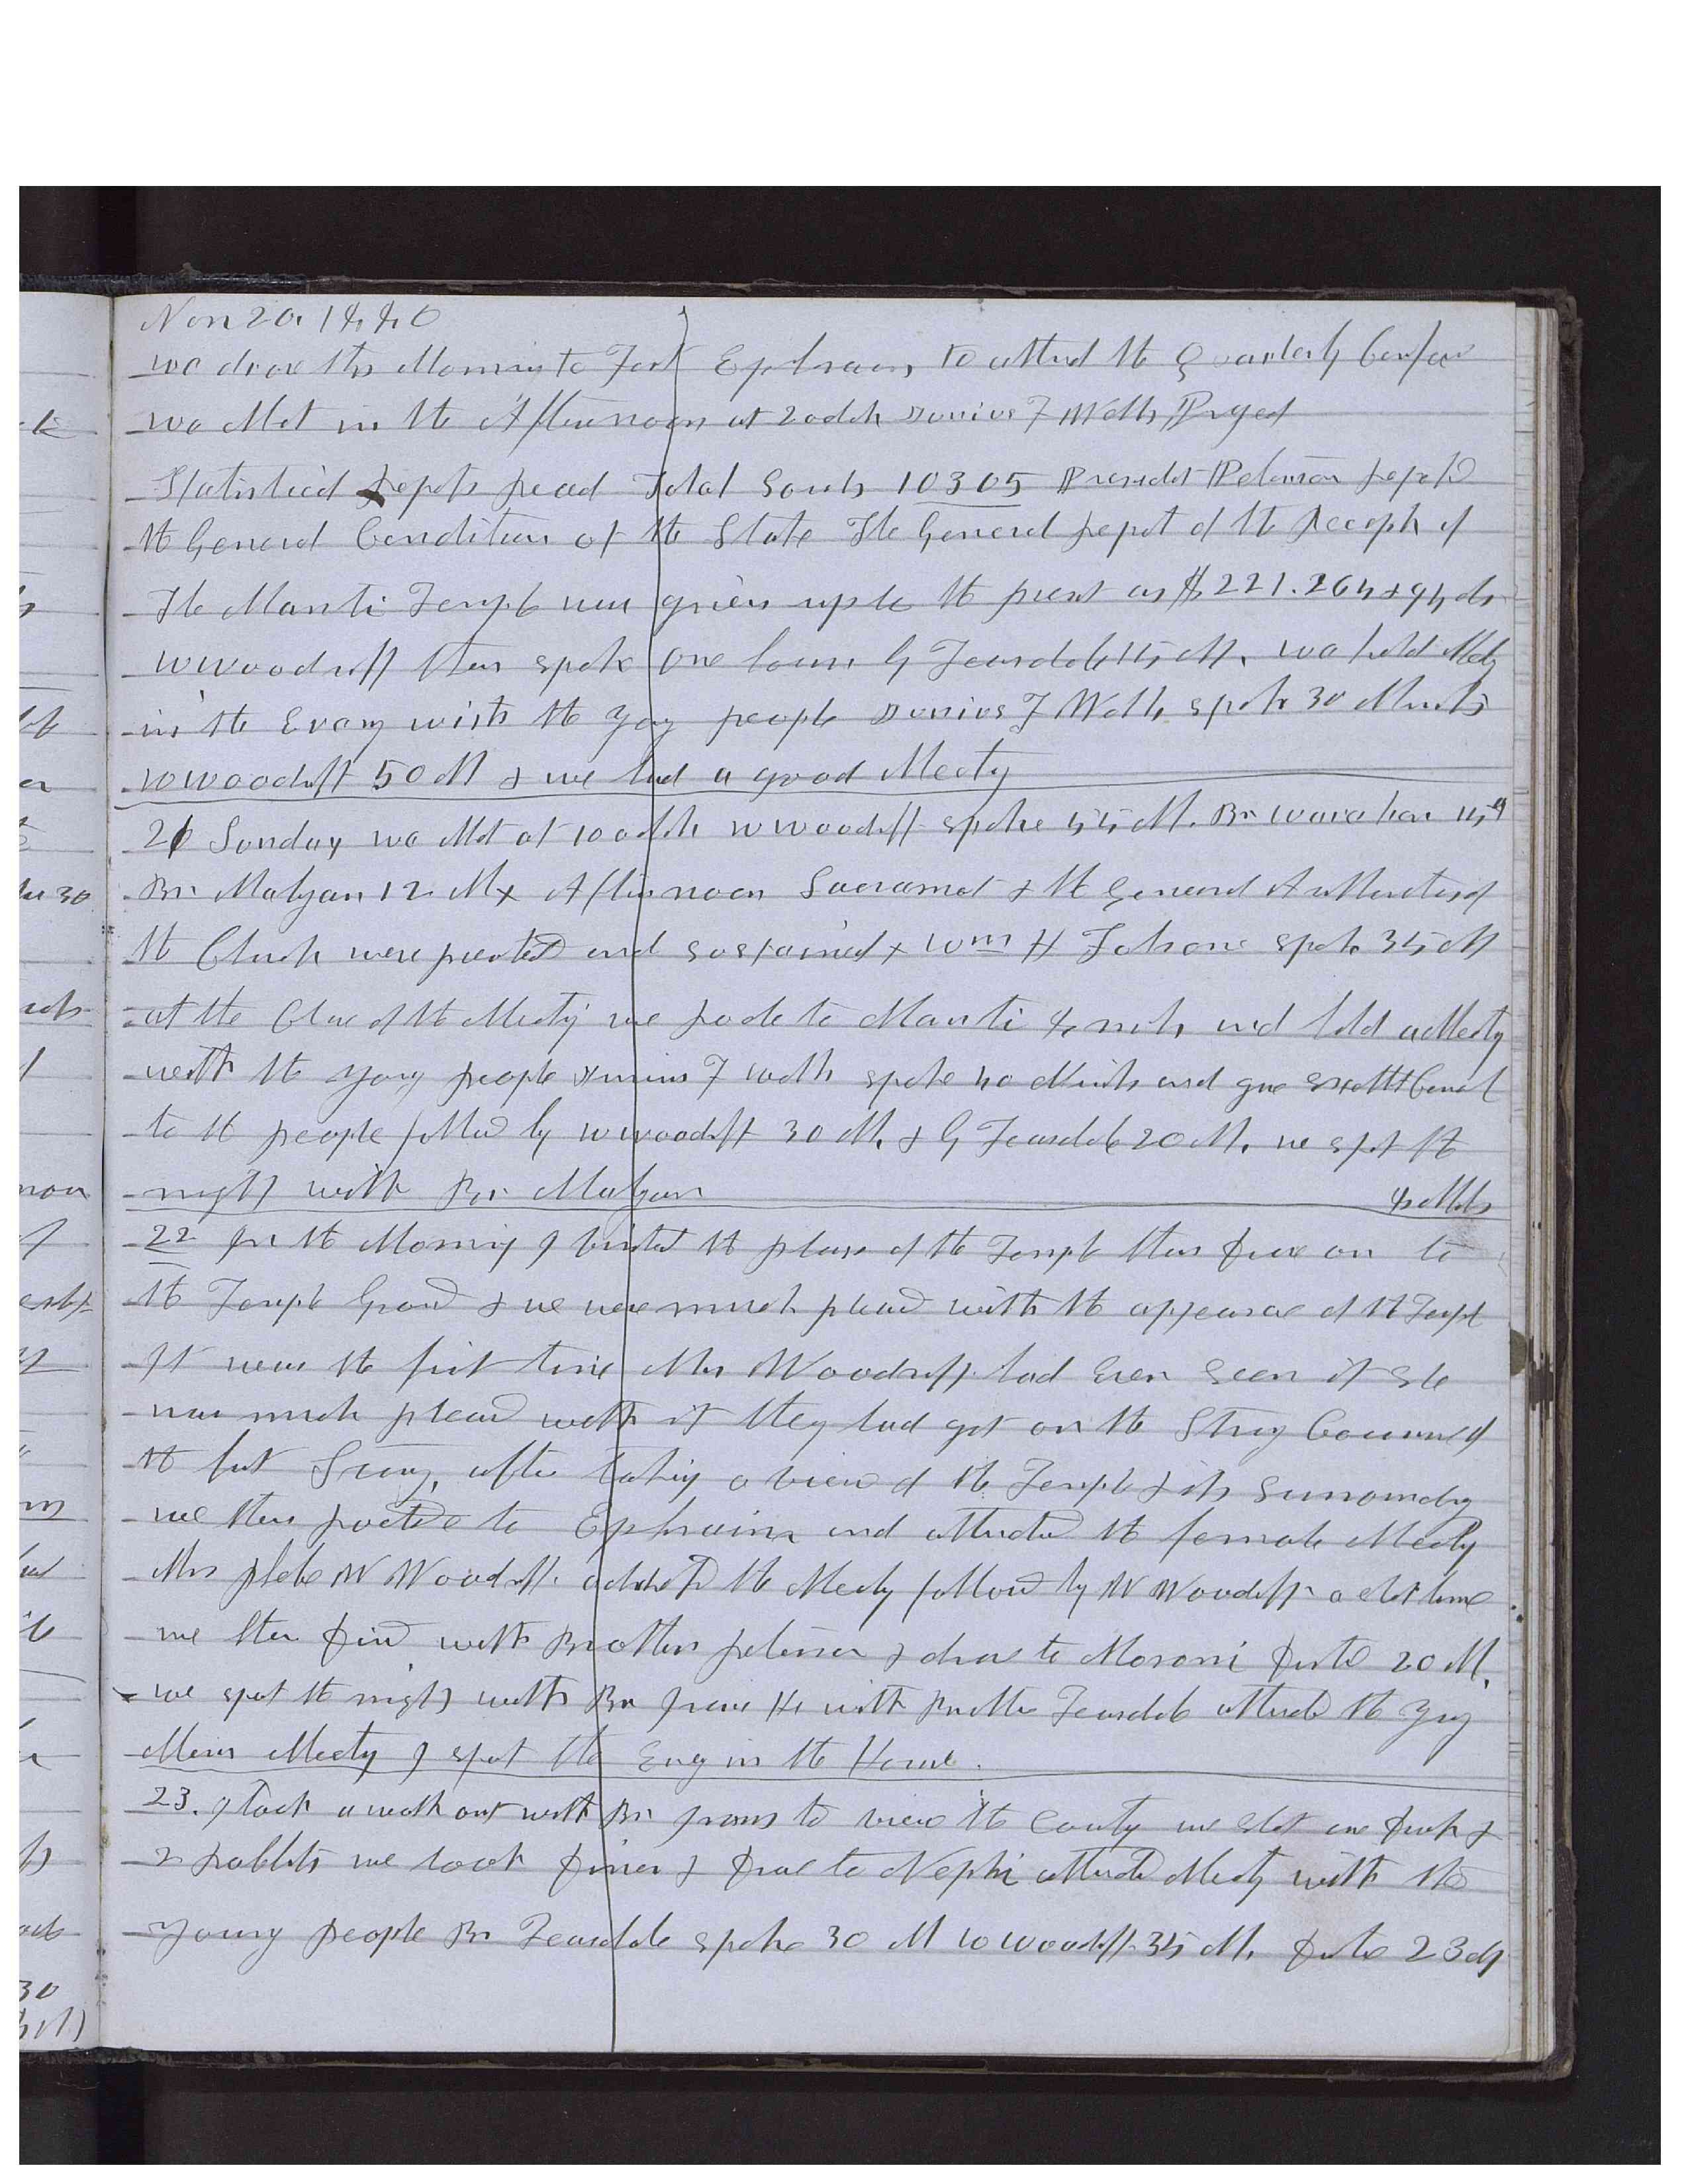 Nov 20, 1880
we drove this Morning to Fort Ephraim, to attend the Quarterly Confere
we Met in the Afternoon at 2 oclok Junius F Wells Prayed
Statisticel Repots Read Total Souls 10305 Presidet Peterson Reptd
the General Condition of the State The General Repot of the Recepts of
The Manti Temple was given up to the presnt as $221.264 & 94 cts
W Woodruff then spoke one hour G Teasdale 15 M. we held Meetg
in the Evening with the Yong people Junius F Wells spoke 30 Minuts
W Woodruff 50 M & we had a good Meeting
21 Sunday we Met at 10 oclok W Woodruff spoke 55 M. Br 15 M
Br Maban 12 M & Afternoon Sacramet & the General Authorities of
the Church were preented and sustained & Wm H Folsome spoke 35 M
at the Close of the Meeting we Rode to Manti 8 mils and held a Meeting
with the Young people Junius F Wells spoke 40 Minuts and gave Excellet Councel
to the people followed by W Woodruff 30 M. & G Teasdale 20 M. we spet the
night with Br Maban 8 Mils
22 In the Morning I visited the plans of the Temple then Drove on to
the Temple Ground & we were much pleased with the appearance of the Templ
It was the first time Mrs Woodruff had Ever Seen it She
was much pleased with it they had got on the String Course of
the first Story, after taking a view of the Temple & its Surroundings
we then Rode to Ephraim and attended the female Meeting
Mrs Phebe W Woodruff. addressed the Meeting followed by W Woodruff a shot time
we then Dined with Brother Peterson & drove to Moroni Distd 20 M.
we spent the night with Br He with Brother Teasdale attended the Yong
Mens Meeting I spent the Eveng in the House.
23. I took a walk out with Br to view the County we shot one Duck &
2 Rabbits we took Dinner & Drove to Nephi attended Meeting with the
Young people Br Teasdale spoke 30 M W Woodruff 35 M. Distce 23 M